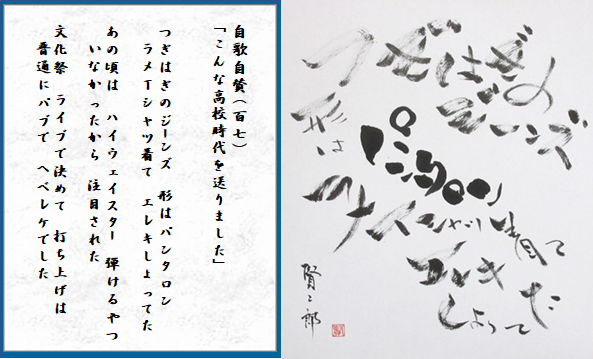 自歌自賛（百七）
「こんな高校時代を送りました」
つぎはぎのジーンズ　形はパンタロン
ラメTシャツ着て　エレキしょってた
あの頃は　ハイウェイスター　弾けるやつ
いなかったから　注目された
文化祭　ライブで決めて　打ち上げは
普通にパブで　ヘベレケでした
つぎはぎの
ジーンズ
形は
パンタロン
ラメTシャツ
着て
エレキ
しょって
た
賢三郎